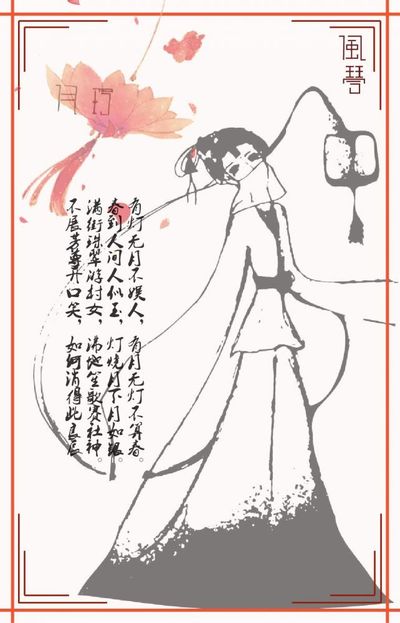 風琴
有灯无月不娱人，有月无灯不算春。
春到人间人似玉，灯烧月下月如银。
满街珠翠游村女，沸地笙歌赛社神。
不展芳尊开口笑，如何消得此良辰。